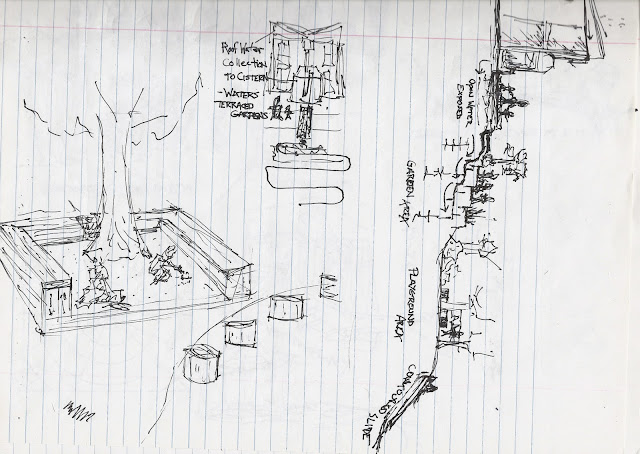 Roof Water
Collection
To Cistern
- Waters
Terraced
Gardens
Open Water
Exposed
Garden Area
Playground
Area
Slide